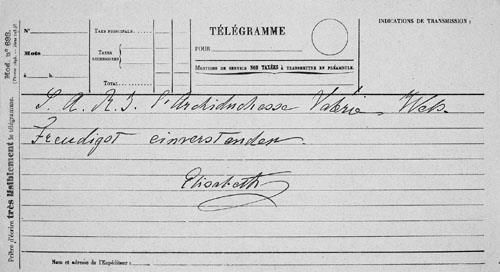 Mod. nº 698.
Prière d'écrire très lisiblement le télégramme.
Nº
Mots
TAXE PRINCIPALE
TAXES ACCESSOIRES
TOTAL
TÉLÉGRAMME
POUR
MENTIONS DE SERVICE NON TAXÉES À TRANSMETTRE EN PRÉAMBULE.
INDICATIONS DE TRANSMISSION :
S. A. R. I. l'Archiduchesse Valérie. Wels.
Freudigst einverstanden.
Elisabeth
Nom et adresse de l'Expéditeur :